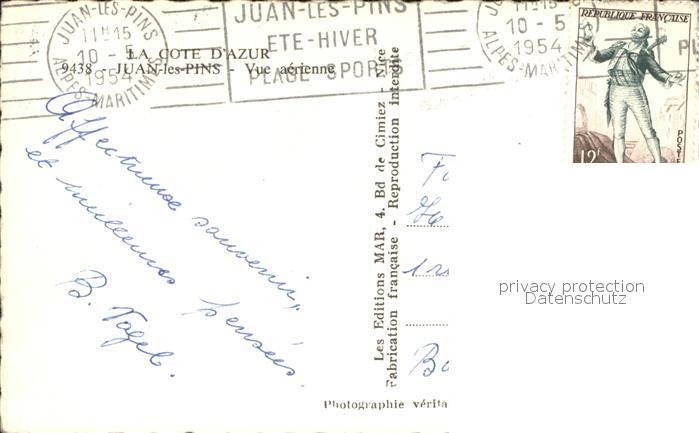 JUAN-LES-PINS
11H15
10 - 5
1954
ALPES-MARITIMES
JUAN-LES-PINS
ETE-HIVER
PLAGE SPORTS
JUAN-LES-PINS
11H15
10 - 5
1954
ALPES-MARITIMES
RÉPUBLIQUE FRANÇAISE
POSTES
12F
LA COTE D'AZUR
9438 - JUAN-les-PINS - Vue aérienne
Affectueux souvenir,
et meilleures pensées.
B. Vogel.
Les Editions MAR, 4. Bd de Cimiez - Nice
Fabrication française - Reproduction interdite
Photographie vérita
privacy protection
Datenschutz